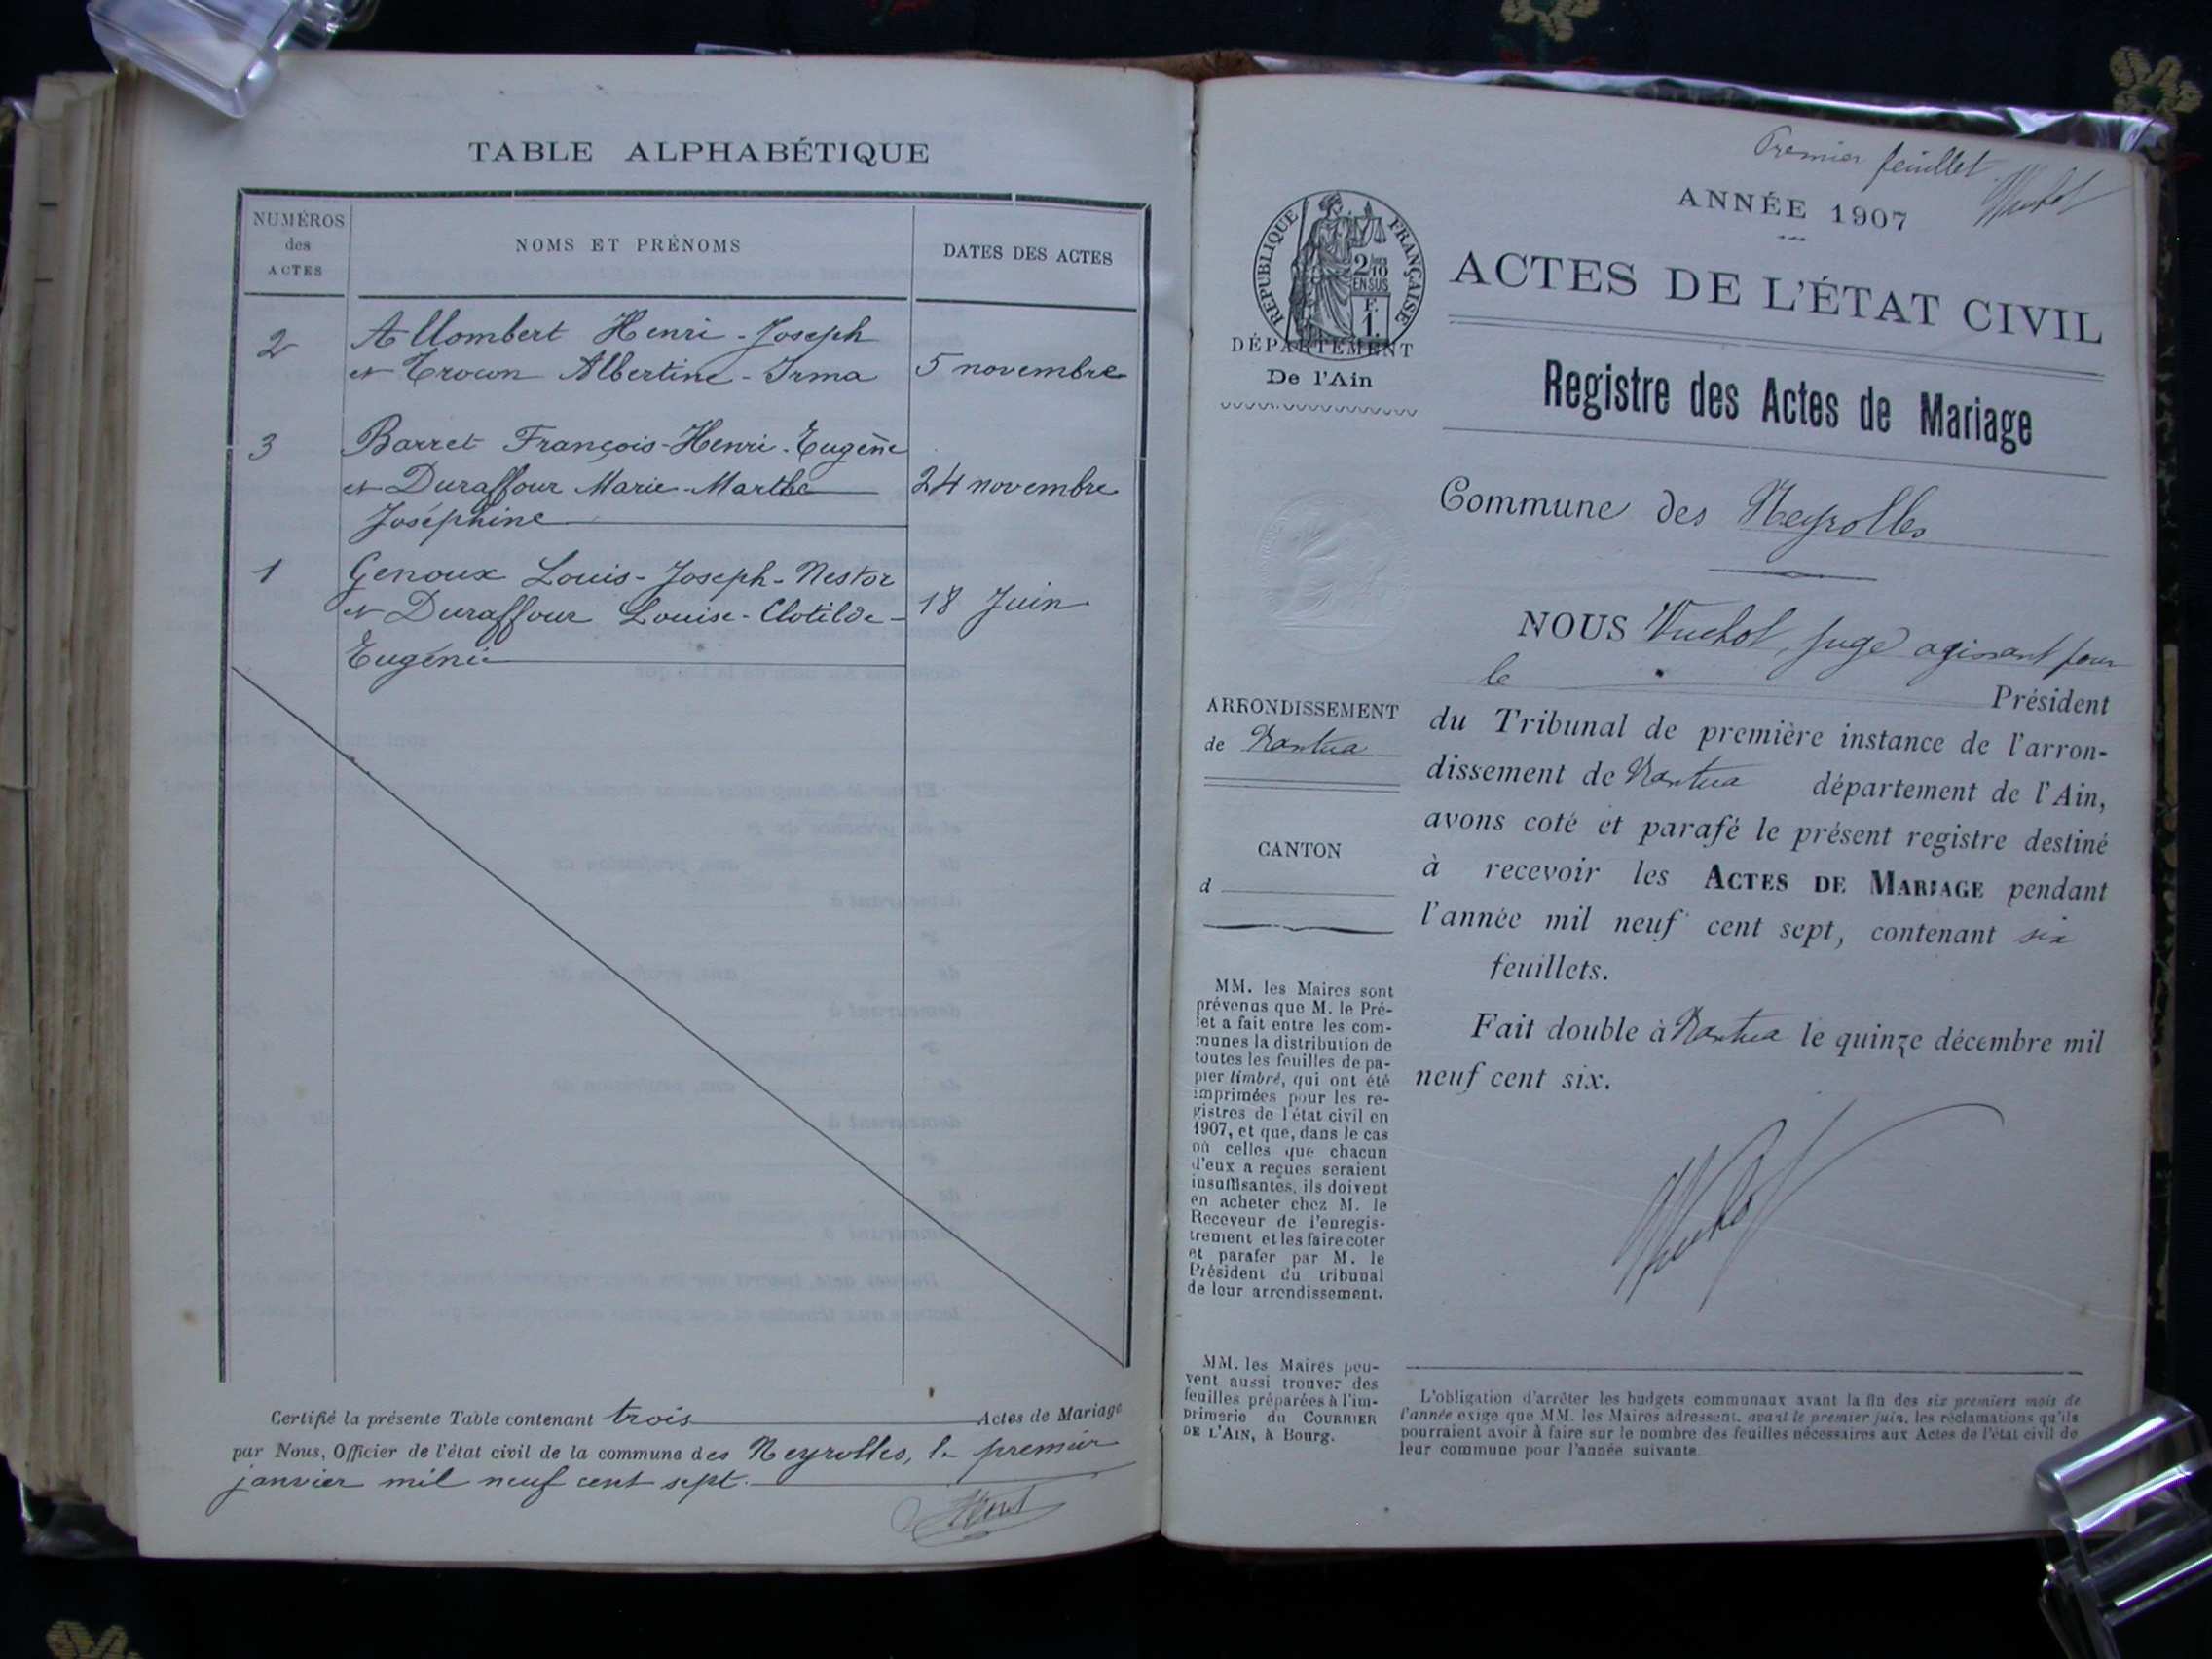 TABLE ALPHABÉTIQUE
NUMÉROS
des
ACTES
NOMS ET PRÉNOMS
DATES DES ACTES
2
Allombert Henri-Joseph
et Trocon Albertine-Irma
5 novembre
3
Barret François-Henri-Eugène
et Duraffour Marie-Marthe
24 novembre
Joséphine
1
Genoux Louis-Joseph-Nestor
et Duraffour Louise-Clotilde-
18 Juin
Eugénie
Certifié la présente Table contenant trois Actes de Mariage
par Nous, Officier de l'état civil de la commune des Neyrolles, le premier
janvier mil neuf cent sept.
Premier feuillet
ANNÉE 1907
RÉPUBLIQUE FRANÇAISE
2/10
EN SUS
F.
1.
ACTES DE L'ÉTAT CIVIL
DÉPARTEMENT
De l'Ain
Registre des Actes de Mariage
Commune des Neyrolles
NOUS Vuchot, juge agissant pour
le Président
ARRONDISSEMENT
de Nantua
du Tribunal de première instance de l'arron-
dissement de Nantua département de l'Ain,
avons coté et parafé le présent registre destiné
CANTON
d
à recevoir les ACTES DE MARIAGE pendant
l'année mil neuf cent sept, contenant six
feuillets.
Fait double à Nantua le quinze décembre mil
neuf cent six.
MM. les Maires sont
prévenus que M. le Pré-
fet a fait entre les com-
munes la distribution de
toutes les feuilles de pa-
pier timbré, qui ont été
imprimées pour les re-
gistres de l'état civil en
1907, et que, dans le cas
où celles que chacun
d'eux a reçues seraient
insuffisantes, ils doivent
en acheter chez M. le
Receveur de l'enregis-
trement et les faire coter
et parafer par M. le
Président du tribunal
de leur arrondissement.
MM. les Maires peu-
vent aussi trouver des
feuilles préparées à l'im-
primerie du COURRIER
DE L'AIN, à Bourg.
L'obligation d'arrêter les budgets communaux avant la fin des six premiers mois de
l'année exige que MM. les Maires adressent, avant le premier juin, les réclamations qu'ils
pourraient avoir à faire sur le nombre des feuilles nécessaires aux Actes de l'état civil de
leur commune pour l'année suivante.